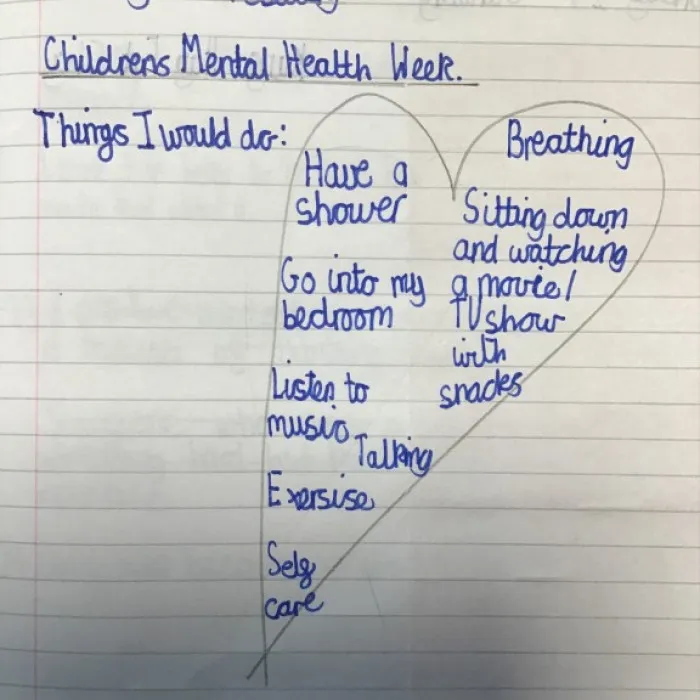 Childrens Mental Health Week.
Things I would do:
Have a
shower
Go into my
bedroom
Listen to
music
Talking
Exersise
Self
care
Breathing
Sitting down
and watching
a movie/
TV show
with
snacks